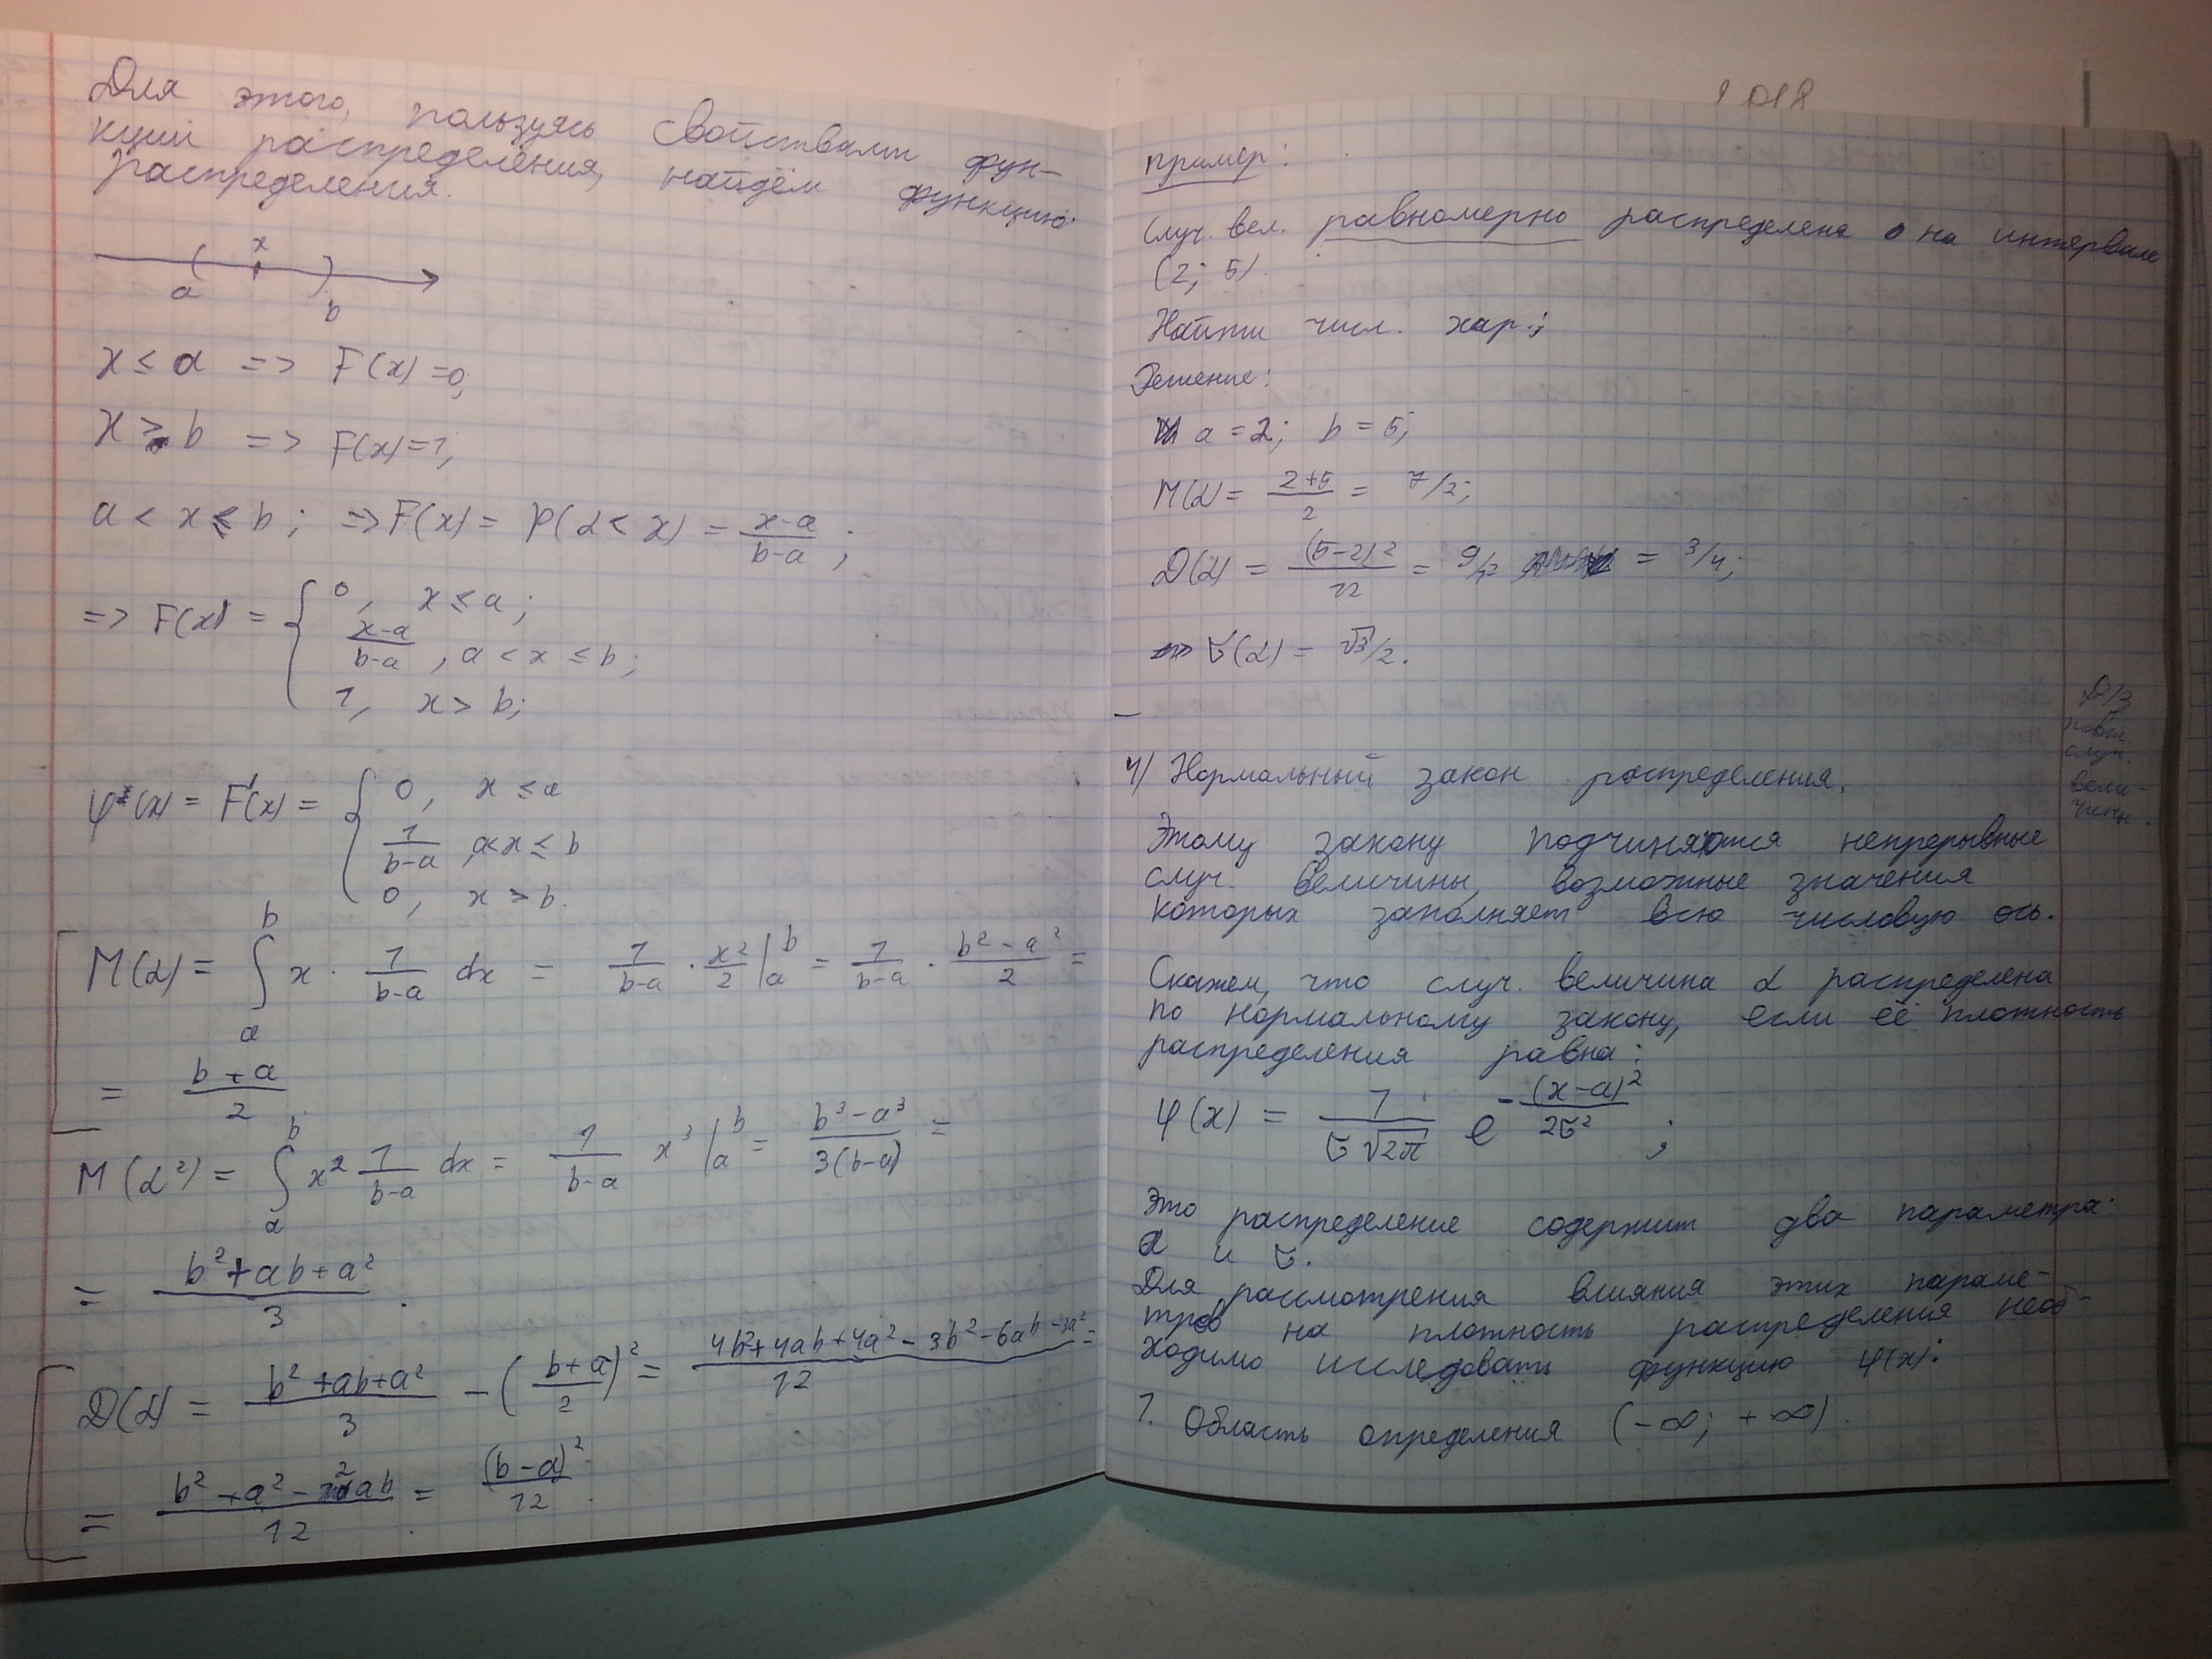 Для этого, пользуясь свойствами фун-
кции распределения, найдём функцию
распределения.
x
a
b
x ≤ a => F(x) = 0;
x > b => F(x) = 1;
a < x ≤ b; => F(x) = P(α < x) = (x-a)/(b-a);
=> F(x) = { 0, x ≤ a;
(x-a)/(b-a), a < x ≤ b;
1, x > b;
φ(x) = F'(x) = { 0, x ≤ a
1/(b-a), a<x ≤ b
0, x > b.
M(α) = ∫_a^b x · 1/(b-a) dx = 1/(b-a) · x²/2 |_a^b = 1/(b-a) · (b² - a²)/2 =
= (b+a)/2
M(α²) = ∫_a^b x² 1/(b-a) dx = 1/(b-a) x³ |_a^b = (b³-a³)/(3(b-a)) =
= (b²+ab+a²)/3.
D(α) = (b²+ab+a²)/3 - ((b+a)/2)² = (4b²+4ab+4a²-3b²-6ab-3a²)/12 =
= (b²+a²-2ab)/12 = (b-a)²/12.
пример:
Случ. вел. равномерно распределена на интервале
(2; 5).
Найти числ. хар.;
Решение:
a = 2; b = 5;
M(α) = (2+5)/2 = 7/2;
D(α) = (5-2)²/12 = 9/12 = 3/4;
σ(α) = √3/2.
Д/з
повт.
случ.
вели-
чины.
4) Нормальный закон распределения.
Этому закону подчиняются непрерывные
случ. величины, возможные значения
которых заполняет всю числовую ось.
Скажем, что случ. величина α распределена
по нормальному закону, если её плотность
распределения равна:
φ(x) = 1/(σ√(2π)) e^(-(x-a)²/(2σ²));
Это распределение содержит два параметра:
a и σ.
Для рассмотрения влияния этих параме-
тров на плотность распределения необ-
ходимо исследовать функцию φ(x):
1. Область определения (-∞; +∞).